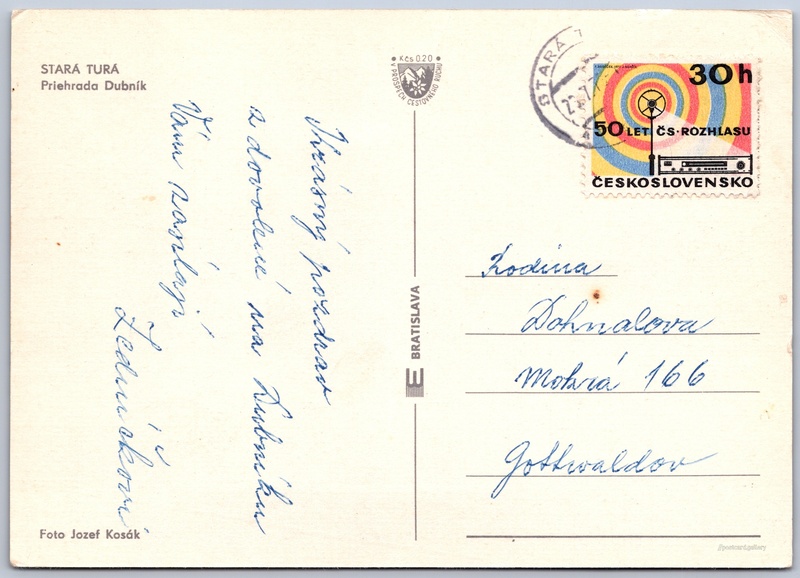 STARÁ TURÁ
Priehrada Dubník
Krásný pozdrav
z dovolené na Dubníku
Vám zasílají
Foto Jozef Kosák
Kčs 0.20
V PROSPECH CESTOVNÉHO RUCHU
BRATISLAVA
STARÁ T
30h
50 LET ČS·ROZHLASU
ČESKOSLOVENSKO
Rodina
Dohnalova
Mokrá 166
Gottwaldov